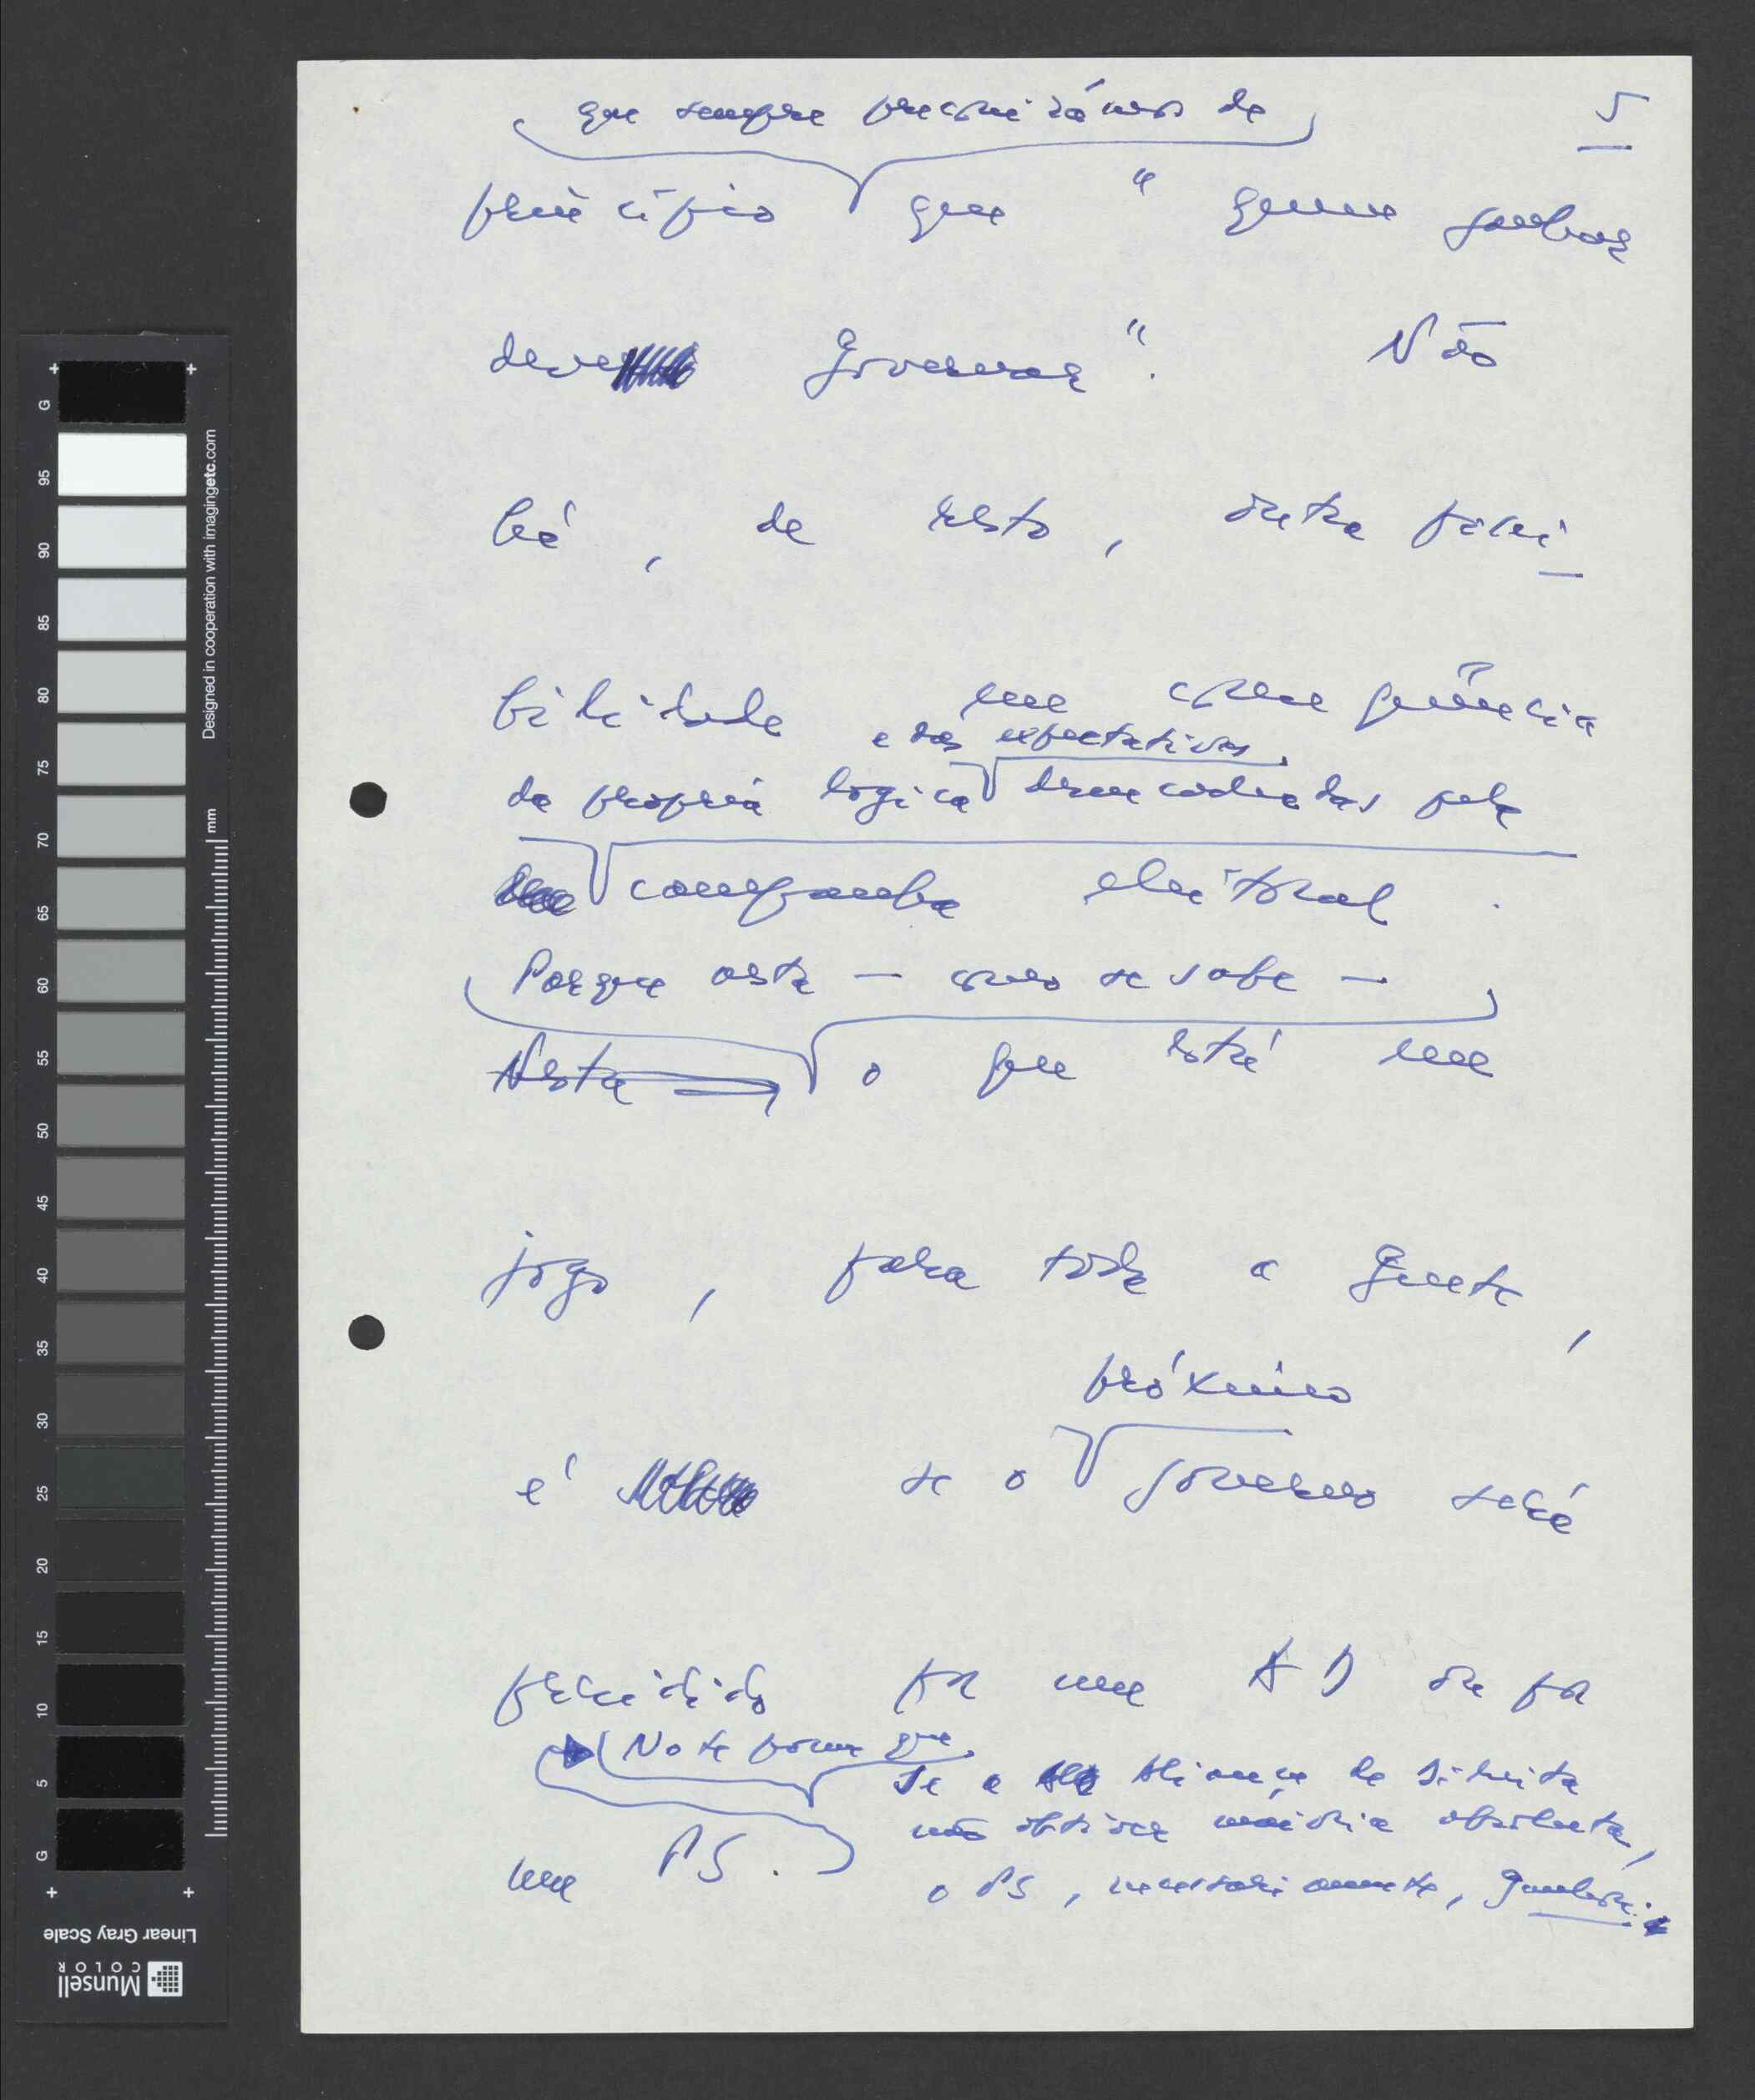 5
que sempre preconizámos de
princípio que " quem ganhar
deve governar". Não
há, de resto, outra possi
bilidade em consequência
e das expectativas
da própria lógica desencadeadas pela
campanha eleitoral.
Porque esta — como se sabe —
Nesta o que está em
jogo, para toda a gente,
próximo
é se o governo será
presidido por um AD ou por
Note porém que
Se a Aliança de Direita
não obtiver maioria absoluta,
um PS.
o PS, necessariamente, ganhará.
G 95 90 85 80 75 70 65 60 55 50 45 40 35 30 25 20 15 10 5 G
Designed in cooperation with imagingetc.com
mm
Linear Gray Scale
Munsell
COLOR